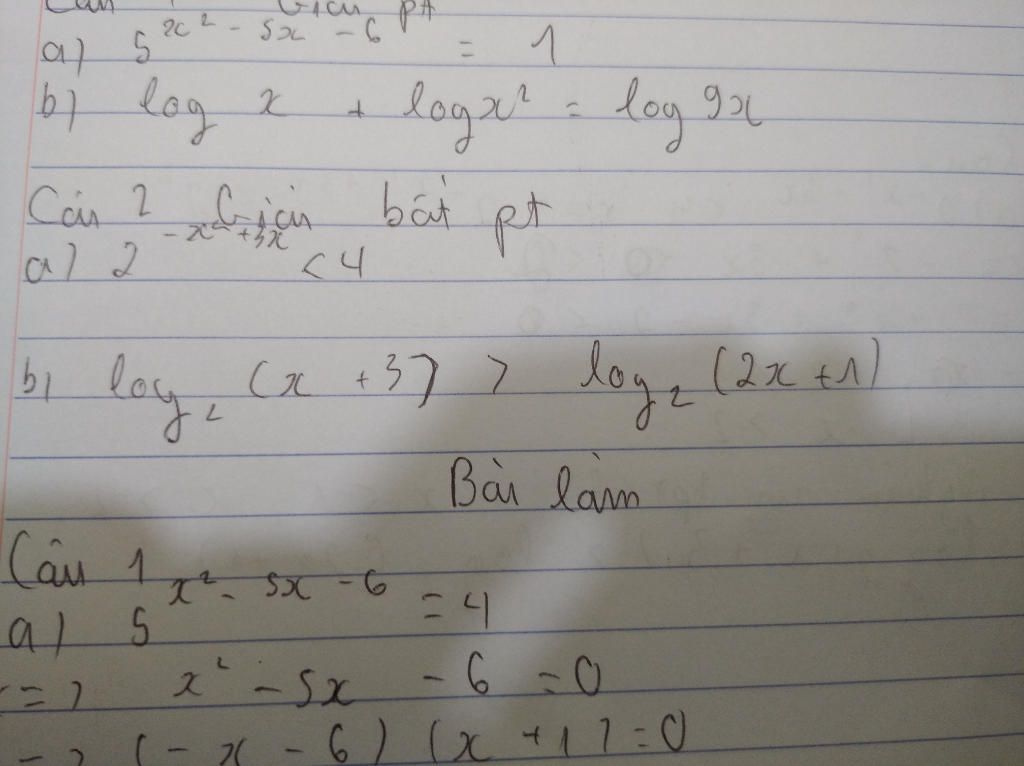 Giải pt
a) 5^{x² - 5x - 6} = 1
b) log x + log x² = log 9x
Câu 2 Giải bất pt
a) 2^{-x² + 3x} < 4
b) log₂ (x + 3) > log₂ (2x + 1)
Bài làm
Câu 1
a) 5^{x² - 5x - 6} = 4
<=> x² - 5x - 6 = 0
(- x - 6) (x + 1) = 0